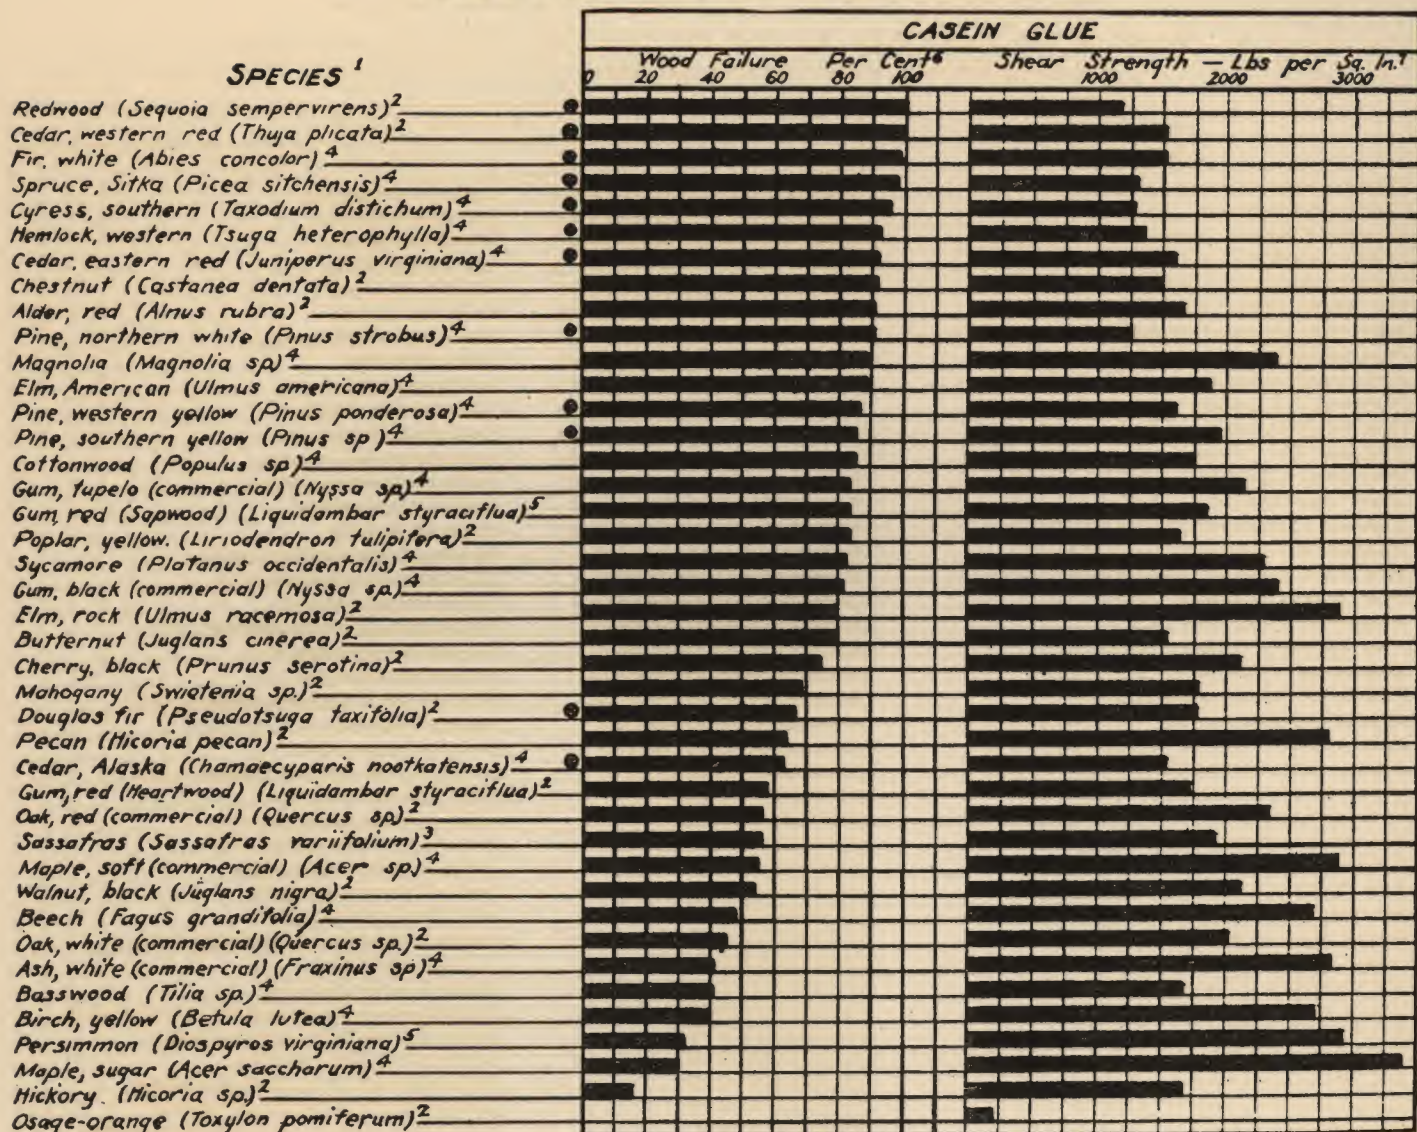 CASEIN GLUE
SPECIES 1
Wood Failure Per Cent6
Shear Strength — Lbs per Sq. In.7
0 20 40 60 80 100
1000 2000 3000
Redwood (Sequoia sempervirens)2
Cedar, western red (Thuja plicata)2
Fir, white (Abies concolor)4
Spruce, Sitka (Picea sitchensis)4
Cyress, southern (Taxodium distichum)4
Hemlock, western (Tsuga heterophylla)4
Cedar, eastern red (Juniperus virginiana)4
Chestnut (Castanea dentata)2
Alder, red (Alnus rubra)2
Pine, northern white (Pinus strobus)4
Magnolia (Magnolia sp)4
Elm, American (Ulmus americana)4
Pine, western yellow (Pinus ponderosa)4
Pine, southern yellow (Pinus sp)4
Cottonwood (Populus sp.)4
Gum, tupelo (commercial) (Nyssa sp.)4
Gum, red (Sapwood) (Liquidambar styraciflua)5
Poplar, yellow. (Liriodendron tulipifera)2
Sycamore (Platanus occidentalis)4
Gum, black (commercial) (Nyssa sp.)4
Elm, rock (Ulmus racemosa)2
Butternut (Juglans cinerea)2
Cherry, black (Prunus serotina)2
Mahogany (Swietenia sp.)2
Douglas fir (Pseudotsuga taxifolia)2
Pecan (Hicoria pecan)2
Cedar, Alaska (Chamaecyparis nootkatensis)4
Gum, red (Heartwood) (Liquidambar styraciflua)2
Oak, red (commercial) (Quercus sp.)2
Sassafras (Sassafras variifolium)3
Maple, soft (commercial) (Acer sp.)4
Walnut, black (Juglans nigra)2
Beech (Fagus grandifolia)4
Oak, white (commercial) (Quercus sp.)2
Ash, white (commercial) (Fraxinus sp)4
Basswood (Tilia sp.)4
Birch, yellow (Betula lutea)4
Persimmon (Diospyros virginiana)5
Maple, sugar (Acer saccharum)4
Hickory. (Hicoria sp.)2
Osage-orange (Toxylon pomiferum)2